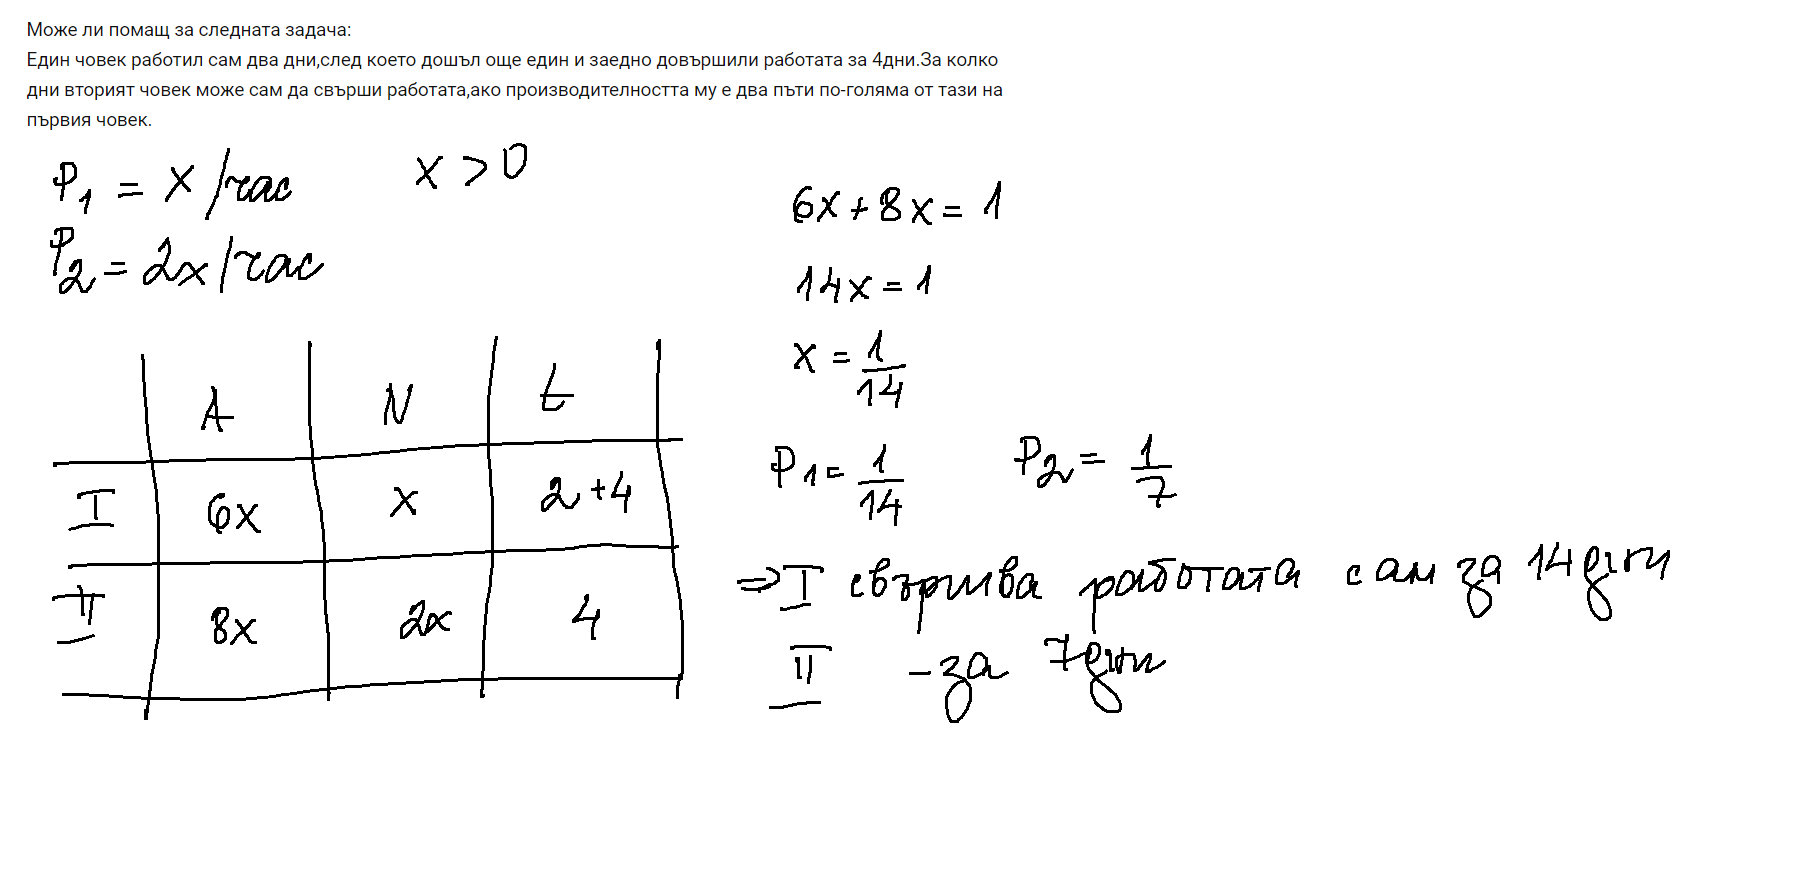 Може ли помащ за следната задача:
Един човек работил сам два дни,след което дошъл още един и заедно довършили работата за 4дни.За колко
дни вторият човек може сам да свърши работата,ако производителността му е два пъти по-голяма от тази на
първия човек.
P₁ = x/час x > 0
P₂ = 2x/час
A N t
I 6x x 2+4
II 8x 2x 4
6x+8x=1
14x=1
x = 1/14
P₁ = 1/14 P₂ = 1/7
⇒ I свършва работата сам за 14дни
II - за 7дни